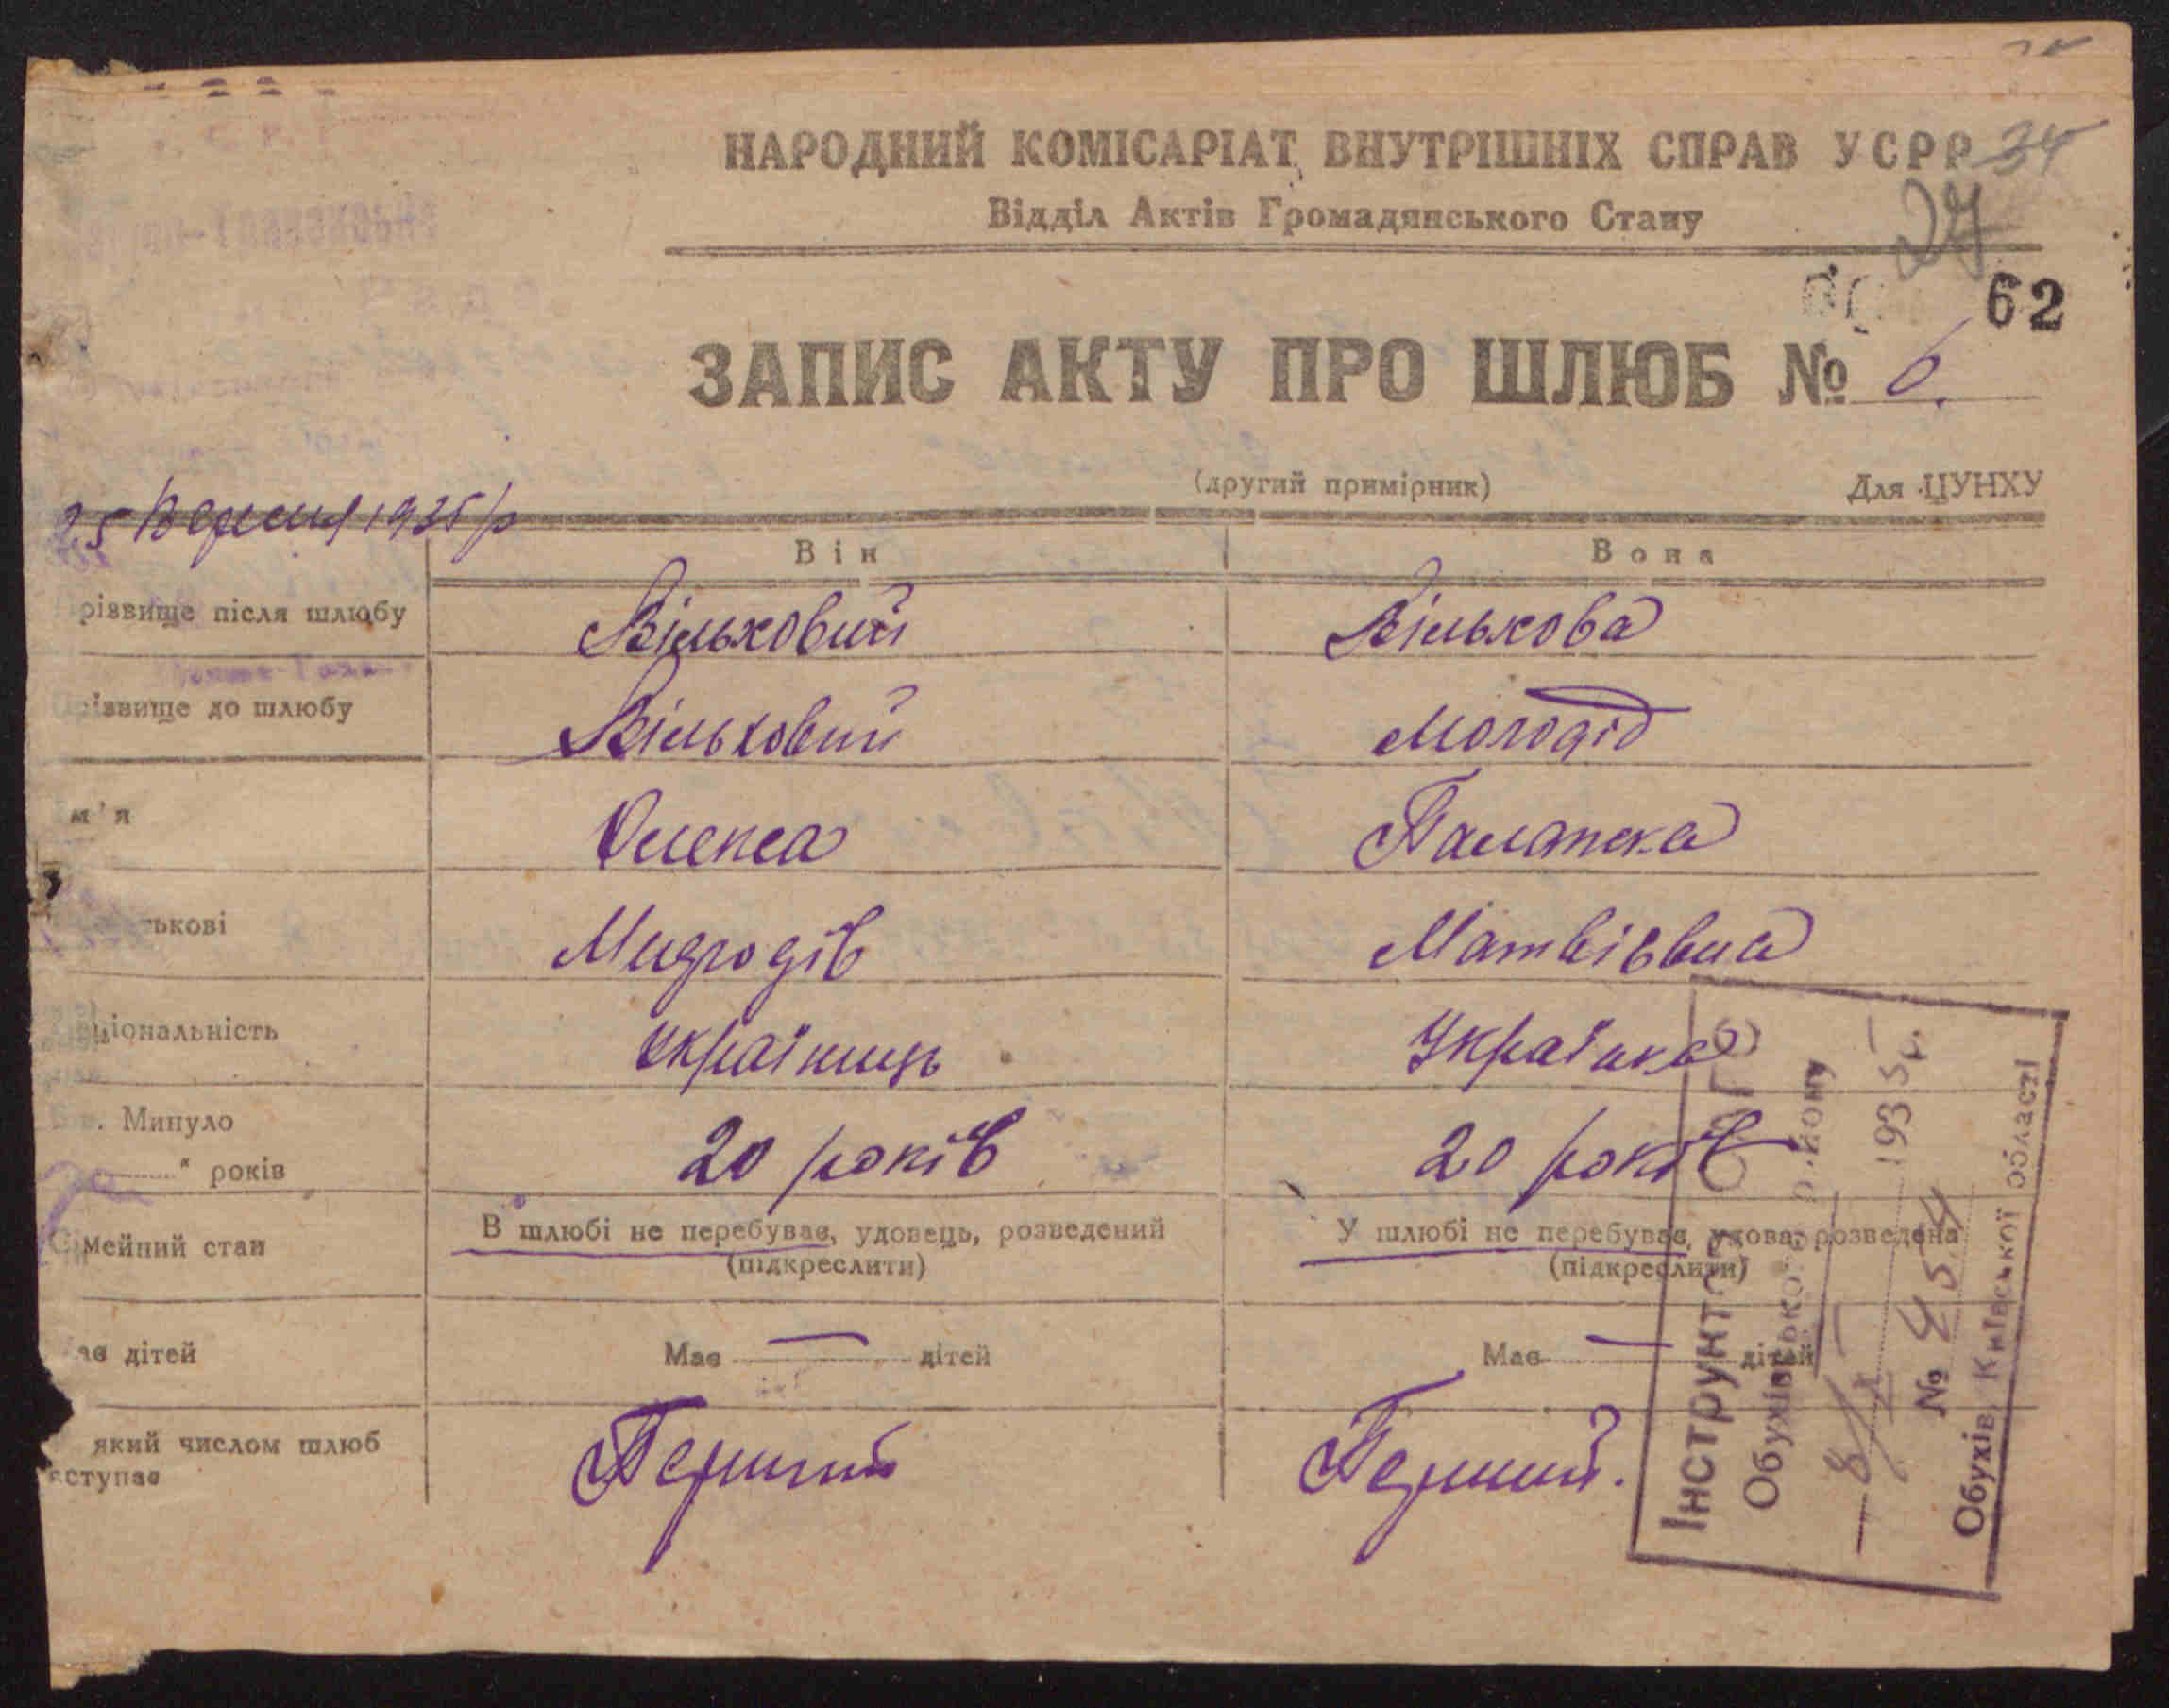 НАРОДНИЙ КОМІСАРІАТ ВНУТРІШНІХ СПРАВ УСРР 34
Відділ Актів Громадянського Стану
27
62
ЗАПИС АКТУ ПРО ШЛЮБ № 6.
(другий примірник) Для ЦУНХУ
25 Вересня 1935 р
Він Вона
різвище після шлюбу Вільховий Вількова
різвище до шлюбу Вільховий Молодід
м'я Олекса
ькові Матвієвна
ціональність Українець Українка
Минуло
" років 20 років 20 років
мейний стан В шлюбі не перебуває, удовець, розведений У шлюбі не перебуває, удова, розведена
(підкреслити) (підкреслити)
ає дітей Має — дітей Має — дітей
який числом шлюб
вступає Перший Перший.
Обухів Київської області
193 5 р.
№